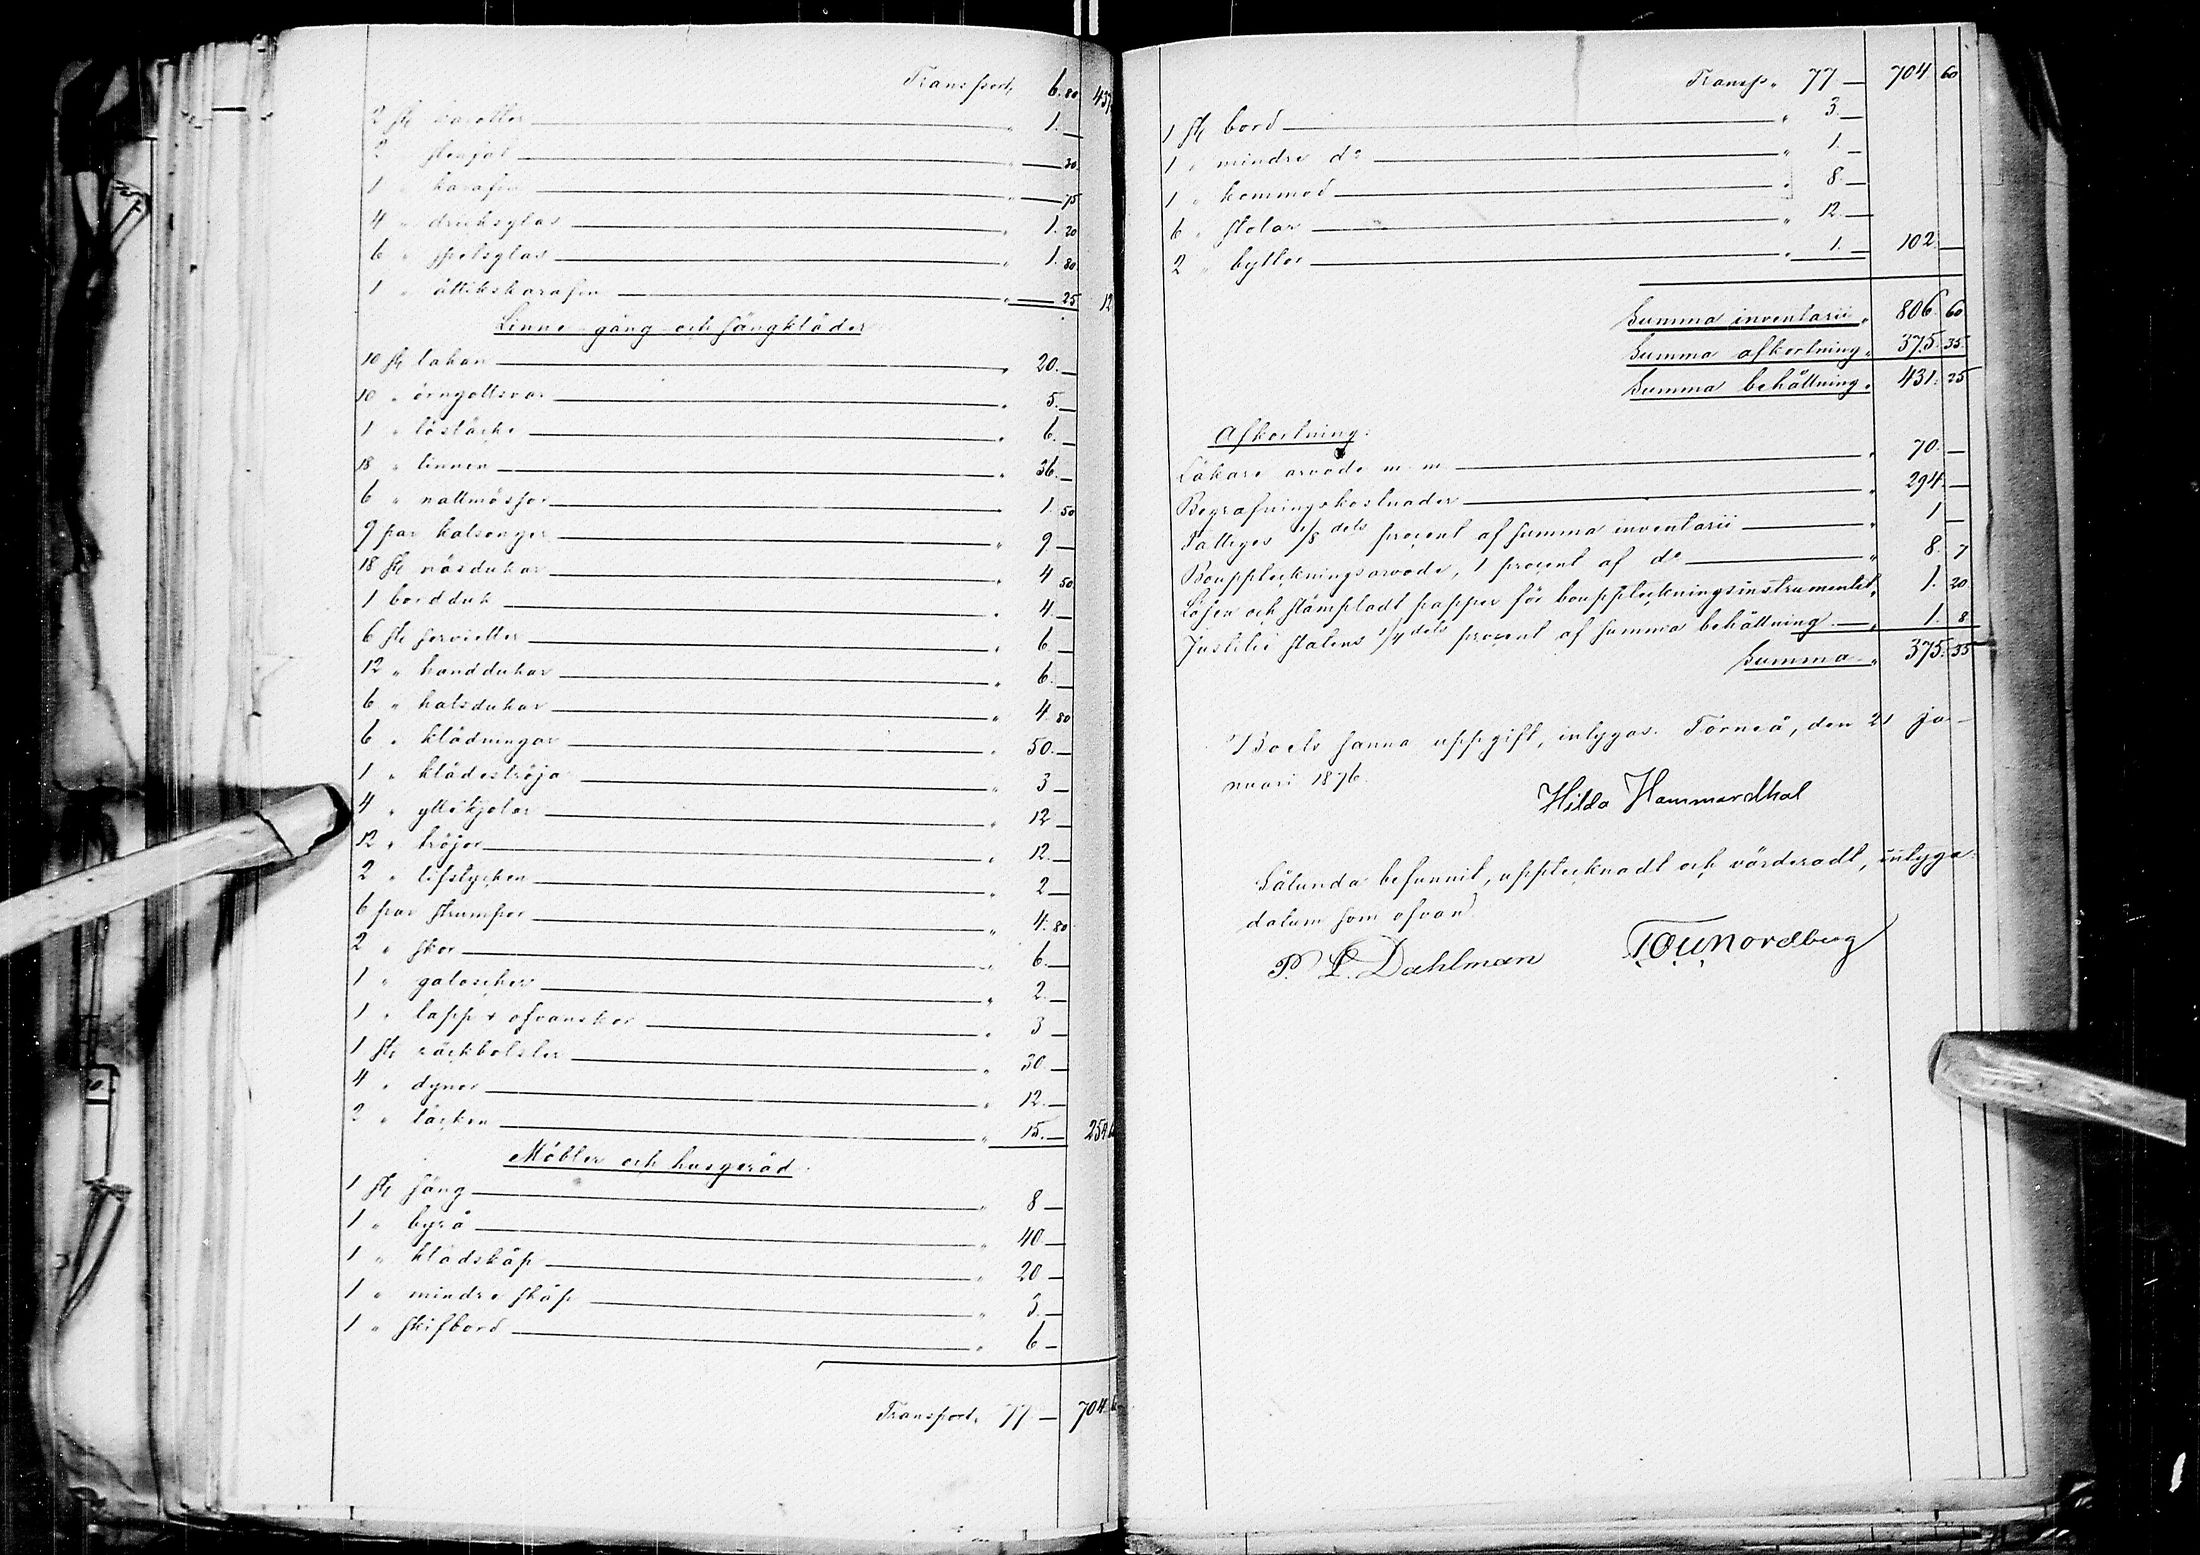 Transport, 6. 80 437
2 st karotter " 1. —
2 " stenfat " — 30
1 " karafin " — 75
4 " dricksglas " 1. 20
6 " spetsglas " 1. 80
1 " ättikskarafin " — 25 12
Linne- gång och sängkläder
10 st lakan " 20. —
10 " örngottsvar " 5. —
1 " löstäcke " 6. —
18 " linnen " 36. —
6 " nattmössor " 1. 50
9 par kalsonger " 9 —
18 st näsdukar " 4 50
1 bordduk " 4. —
6 st servietter " 6. —
12 " handdukar " 6. —
6 " halsdukar " 4. 80
6 " klädningar " 50. —
1 " klädeströja " 3 —
4 " yllekjolar " 12 —
12 " tröjor " 12. —
2 " lifstycken " 2 —
6 par strumpor " 4. 80
2 " skor " 6. —
1 " galoscher " 2. —
1 " lapp ofvanskor " 3 —
1 st räckbolster " 30 —
4 " dynor " 12. —
2 " täcken " 15. — 254
Möbler och husgeråd.
1 st säng " 8 —
1 " byrå " 40. —
1 " klädskåp " 20 —
1 " mindre skåp " 3. —
1 " skifbord " 6 —
Transport, 77 — 704. 6
Transp. " 77 — 704 60
1 st bord " 3. —
1 " mindre do " 1. —
1 " kommod " 8. —
6 " stolar " 12. —
2 " byttor " 1. — 102. —
Summa inventarii " 806. 60
Summa afkortning " 375. 35.
Summa behållning " 431. 25
Afkortning.
Läkare arvode m. m. " 70. —
Begrafningskostnader " 294. —
Fattiges 1/8 dels procent af summa inventarii " 1 —
Bouppteckningsarvode, 1 procent af do " 8. 7
Lösen och stämpladt papper för bouppteckningsinstrumentet " 1. 20
Justitiæ statens 1/4 dels procent af summa behållning. " 1. 8
Summa " 375. 35
Boets sanna uppgift, intygas. Torneå, den 21 ja-
nuari 1876.
Hilda Hammardhal
Sålunda befunnit, upptecknadt och värderadt, intyga
datum som ofvan
P. L. Dahlman Nordberg